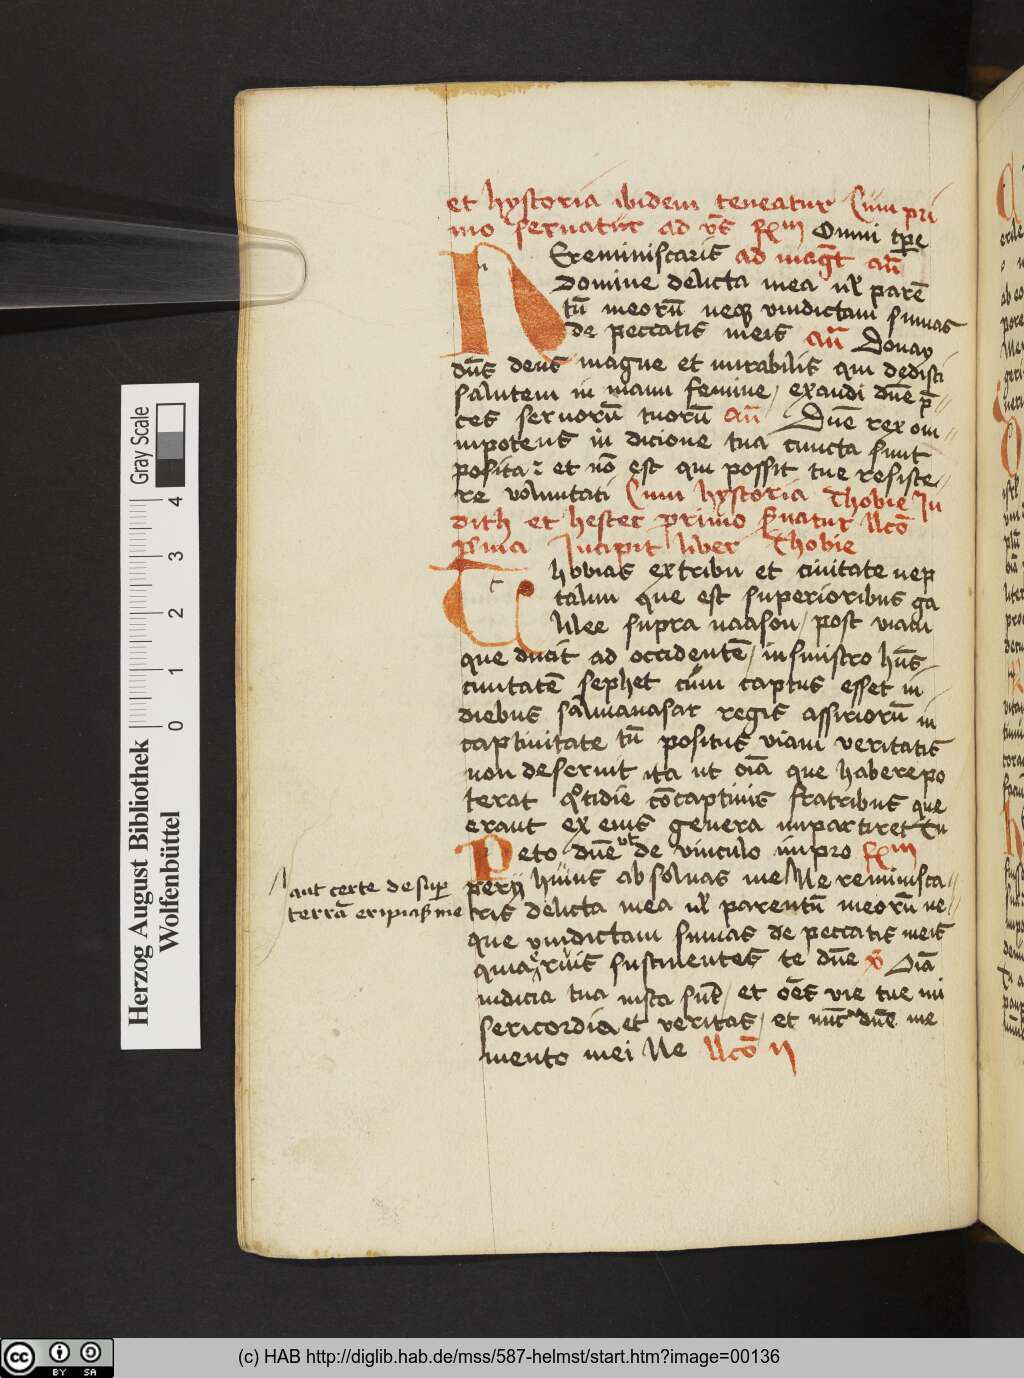 et hystoria ibidem teneatur Cum pri
mo seruatur ad vs̄ Omni tp̄e
Ne reminiscaris ad maḡt an̄
domine delicta mea ul̓ parē
tū meorū neq̄ʒ vindictam sumas
de peccatis meis an̄ Donay
dn̄s deus magne et mirabilis qui dedisti
salutem in manu femine / exaudi dn̄e p̄
ces seruorū tuorū an̄ Dn̄e rex om
nipotens in dicione tua cuncta sunt
posita : et nō est qui possit tue resiste
re voluntati Cum hystoria Thobie Ju
dith et hester primo ẜuatur llcō
p̄ma Incipit liber Thobie
Thobias ex tribu et ciuitate nep
talim que est superioribus ga
lilee supra naason / post viam
que ducit ad occidentē / in sinistro hn̄s
ciuitatē sephet cū̄m captus esset in
diebus salmanasar regis assiriorū in
captiuitate tn̄ positus viam veritatis
non deseruit ita ut oīa que habere po
terat qͦtidie cōcaptiuis fratribus que
erant ex eius genera impartiret Tu
Peto dn̄e ut de vinculo impro
perij huius absoluas me Ne reminisca
ris delicta mea ul̓ parentū meorū ne
que vindictam sumas de peccatis meis
quia eruis sustinentes te dn̄e v̄ Oīa
iudicia tua iusta sūt / et oēs vie tue mi
sericordia et veritas / et nūc dn̄e me
mento mei Ne llcō ij
aut certe desuper
terrā eripias me
Gray Scale
0 1 2 3 4
Herzog August Bibliothek
Wolfenbüttel
cc BY SA
(c) HAB http://diglib.hab.de/mss/587-helmst/start.htm?image=00136